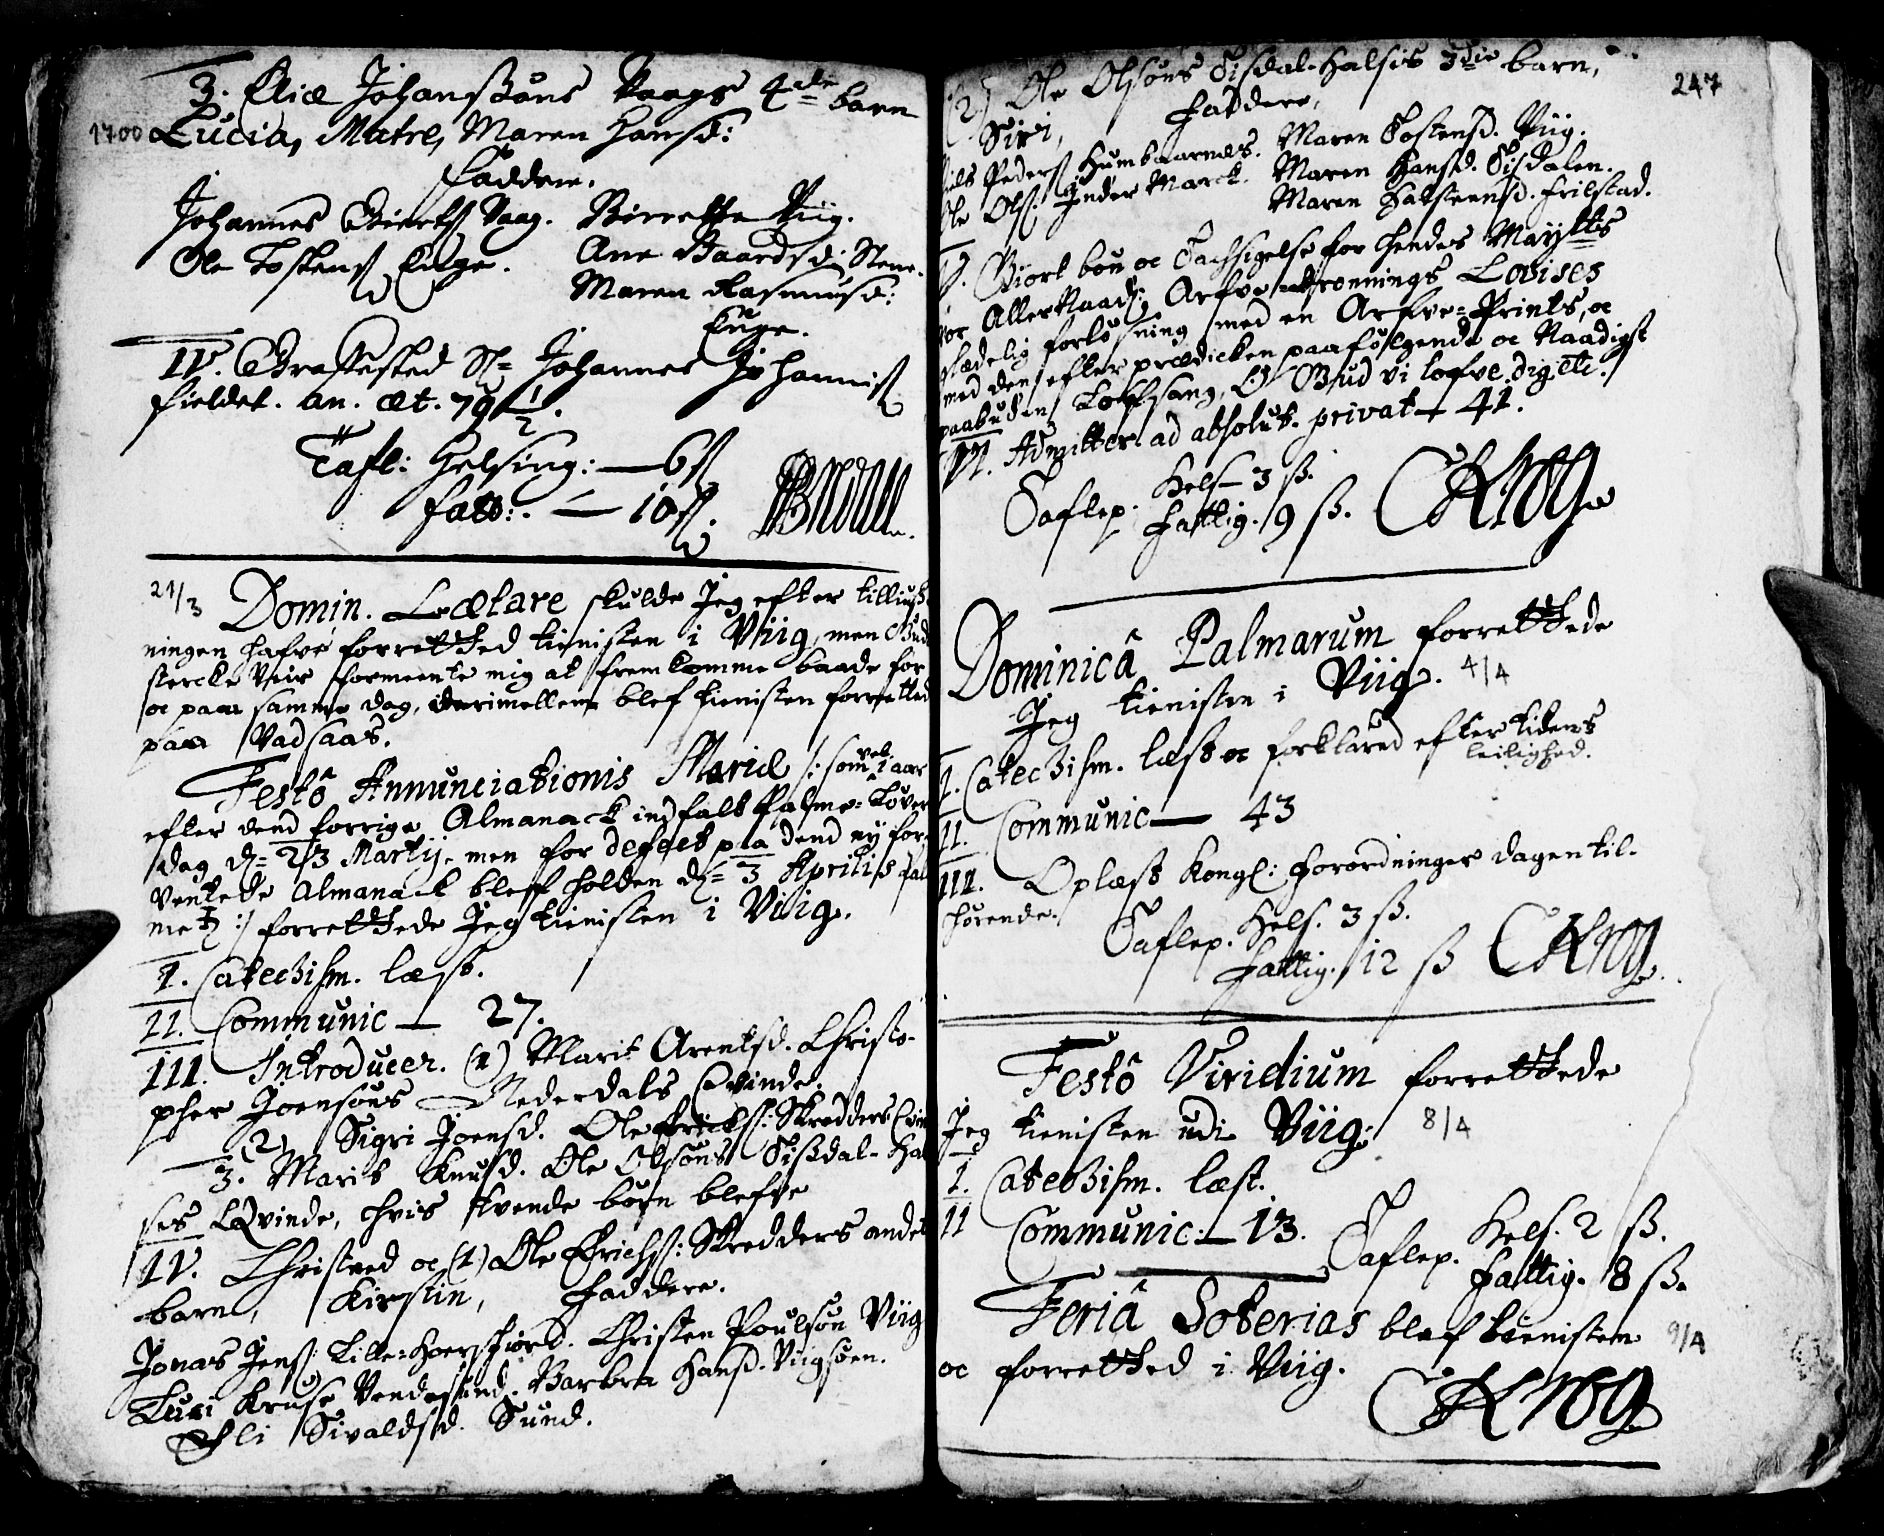 3. Eliæ Johanssøns Vaags 4de barn
1700 Lucia, Matre, Maren Hansd:
Faddere.
Johannes Giertss Vaag. Birrette Viig.
Ole Tostenss Enge. Ane Baardsd: Stene.
Maren Rasmusd:
Enge.
IV. Graffæsted Sl= Johannes Johanniss
fieldet. an. æt. 79 1/2.
Tafl: Helsing: — 6 ss
fatt: — 10 ss.
21/3 Domin. Lætare skulde Jeg efter tilliuss
ningen hafve forrettet tienisten i Viig, men
stercke Veir formeente mig at fremkomme baade for
oc paa samme dag, derimellem blef tienisten forretted
paa Vadsaas.
Festô Annunciationis Mariæ /: som vel i aar
efter dend forrige Almanack indfalt Palme=Løver
dag d= 23 Martij. men for defect paa dend ny for=
ventede Almanack bleff holden d= 3 Aprilis
:/ forrettede Jeg tienisten i Viig.
I. Catechism. læst.
II. Communic — 27.
III. Introducer. (1) Marit Arentsd. Christo-
pher Joensøns Nederdals Qvinde.
(2) Sigri Joensd. Ole Erichss: Skredders
3. Marit Knusd. Ole Olsøns Tissdal-Hal
ses Qvinde, hvis tvende børn blefve
IV. Christned oc (1) Ole Erichss: Skredders andet
barn, Kirstin, Faddere.
Jonas Jenss: Lille=Hoersfiord. Christen Poulsøn Viig
Luci Kruse Vendesund. Barbra Hansd. Viigsøen.
Eli Sivaldsd. Sund.
247
(2) Ole Olsøns Tisdal-Halsis 3die barn,
Siri, Faddere,
Nils Pederss Humbaarnes. Maren Tostensd. Viig.
Ole Olss: Indermarck. Maren Hansd. Tisdalen.
Maren Halsteensd. Frilstad.
V. Giort bøn oc Tachsigelse for hendes Mayttes
vor AllerNaads: Arfve=dronnings Lovises
glædelig forløsning med en Arfve=Prints, oc
med den efter prædicken paafølgende oc Naadigst
paabuden Lofsang, O Gud vi lofve dig etc.
VI. Admitter. ad absolut. privat — 41.
Taflep. Hels — 3 ss.
Fattig. 9 ss. CKrog
Dominicâ Palmarum forrettede
Jeg tienisten i Viig. 4/4
I. Catechism. læst oc forklared efter tidens
leilighed.
II. Communic — 43
III. Oplæst Kongl: Forordninger dagen til-
hørende.
Taflep. Hels. 3 ss.
Fattig. 12 ss CKrog.
Festô Viridium forrettede
Jeg tienisten udi Viig. 8/4
I. Catechism. læst.
II Communic: — 13. Taflep. Hels. 2 ss.
Fattig. 8 ss.
Feriâ Soterias blef tienisten 9/4
oc forretted i Viig.
CKrog